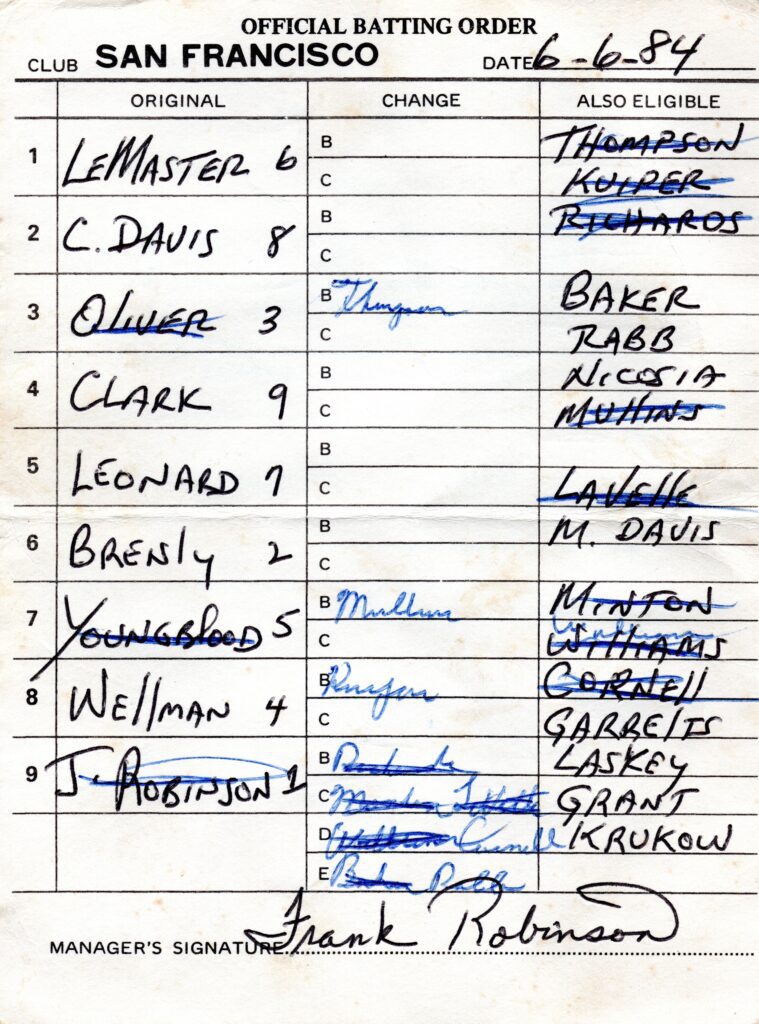 OFFICIAL BATTING ORDER
CLUB SAN FRANCISCO DATE 6-6-84
ORIGINAL CHANGE ALSO ELIGIBLE
1 LEMASTER 6 B THOMPSON
C KUIPER
2 C. DAVIS 8 B RICHARDS
C
3 OLIVER 3 B Thompson BAKER
C RABB
4 CLARK 9 B NICOSIA
C MULLINS
5 LEONARD 7 B
C LAVELLE
6 BRENLY 2 B M. DAVIS
C
7 YOUNGBLOOD 5 B Mullins MINTON
C WILLIAMS
8 WELLMAN 4 B Kuiper CORNELL
C GARRELTS
9 J. ROBINSON 1 B LASKEY
C Lavelle GRANT
D Williams Cornell KRUKOW
E Baker Rabb
MANAGER'S SIGNATURE Frank Robinson